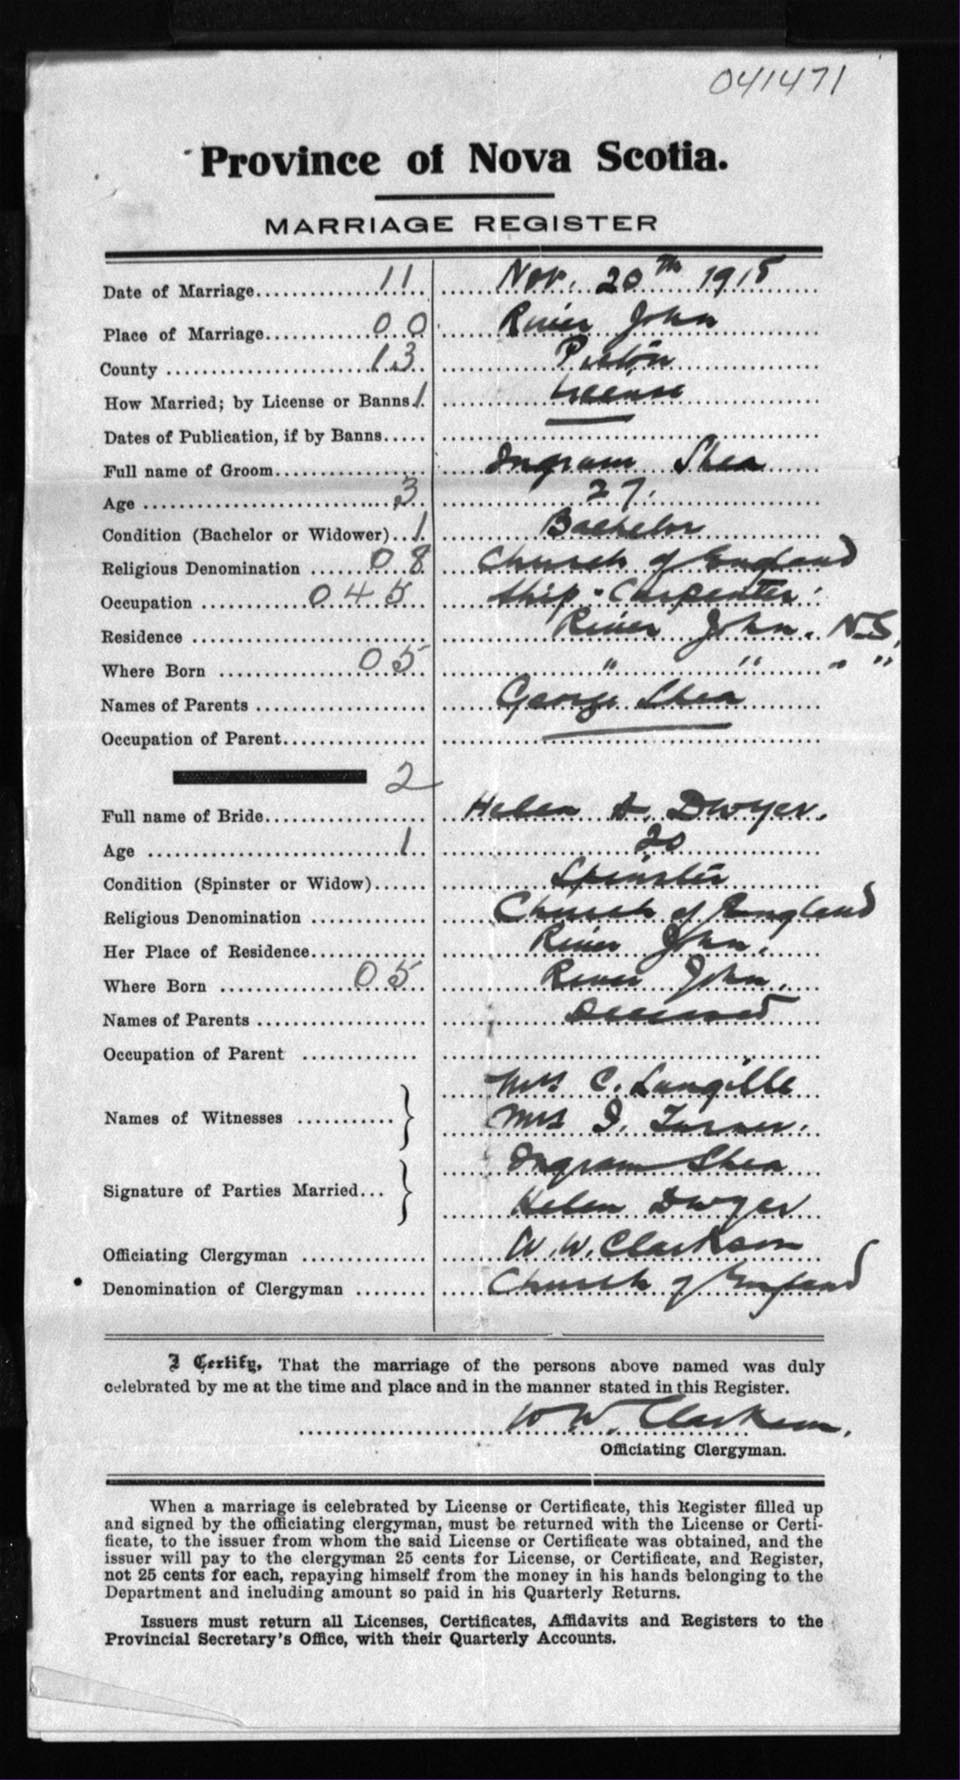 041471
Province of Nova Scotia.
MARRIAGE REGISTER
Date of Marriage 11 Nov. 20th 1915
Place of Marriage 00 River John
County 13 Pictou
How Married; by License or Banns 1 License
Dates of Publication, if by Banns
Full name of Groom Ingram Shea
Age 3 27.
Condition (Bachelor or Widower) 1 Bachelor
Religious Denomination 08 Church of England
Occupation 045 Ship-Carpenter
Residence River John. N.S.
Where Born 05 " " " "
Names of Parents George Shea
Occupation of Parent
2
Full name of Bride Helen Dwyer.
Age 1 20
Condition (Spinster or Widow) Spinster
Religious Denomination Church of England
Her Place of Residence River John.
Where Born 05 River John.
Names of Parents Deceased
Occupation of Parent
Mrs C. Langille
Names of Witnesses
Mrs I. Turner.
Ingram Shea
Signature of Parties Married
Helen Dwyer
Officiating Clergyman W. W. Clarkson
Denomination of Clergyman Church of England
I Certify, That the marriage of the persons above named was duly
celebrated by me at the time and place and in the manner stated in this Register.
W W. Clarkson.
Officiating Clergyman.
When a marriage is celebrated by License or Certificate, this Register filled up
and signed by the officiating clergyman, must be returned with the License or Certi-
ficate, to the issuer from whom the said License or Certificate was obtained, and the
issuer will pay to the clergyman 25 cents for License, or Certificate, and Register,
not 25 cents for each, repaying himself from the money in his hands belonging to the
Department and including amount so paid in his Quarterly Returns.
Issuers must return all Licenses, Certificates, Affidavits and Registers to the
Provincial Secretary's Office, with their Quarterly Accounts.